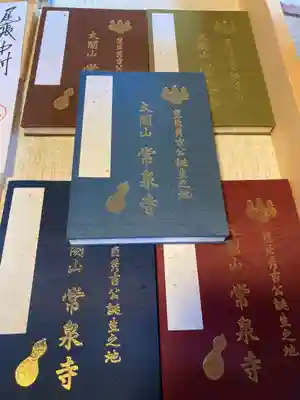 尾張中村
太閤山 常泉寺
豊臣秀吉公誕生之地
太閤山 常泉寺
豊臣秀吉公誕生之地
太閤山 常泉寺
臣秀吉公誕生之地
閤山 常泉寺
臣秀吉公誕生之地
山 常泉寺